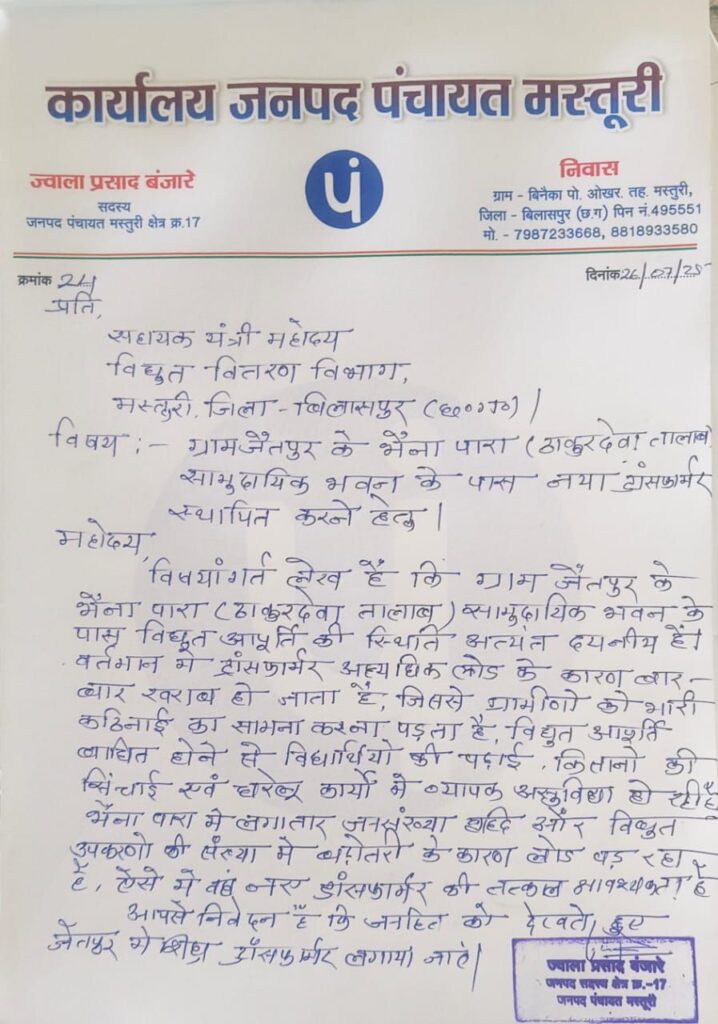 कार्यालय जनपद पंचायत मस्तूरी
ज्वाला प्रसाद बंजारे
सदस्य
जनपद पंचायत मस्तुरी क्षेत्र क्र.17
पं
निवास
ग्राम - बिनैका पो. ओखर. तह. मस्तुरी,
जिला - बिलासपुर (छ.ग) पिन नं.495551
मो. - 7987233668, 8818933580
क्रमांक 24
दिनांक 26/07/25
प्रति,
सहायक यंत्री महोदय
विद्युत वितरण विभाग,
मस्तुरी, जिला - बिलासपुर (छ०ग०)।
विषय :- ग्राम जैतपुर के भैना पारा (ठाकुरदेवा तालाब)
सामुदायिक भवन के पास नया ट्रांसफार्मर
स्थापित करने हेतु।
महोदय,
विषयांगर्त लेख है कि ग्राम जैतपुर के
भैना पारा (ठाकुरदेवा तालाब) सामुदायिक भवन के
पास विद्युत आपूर्ति की स्थिति अत्यंत दयनीय है।
वर्तमान मे ट्रांसफार्मर अत्यधिक लोड के कारण बार-
बार खराब हो जाता है, जिससे ग्रामीणो को भारी
कठिनाई का सामना करना पड़ता है, विद्युत आपूर्ति
बाधित होने से विद्यार्थियो की पढ़ाई, किसानो की
सिंचाई एवं घरेलू कार्यो मे व्यापक असुविधा हो रही है
भैना पारा मे लगातार जनसंख्या वृद्दि और विद्युत
उपकरणो की संख्या मे बढ़ोतरी के कारण लोड बड़ रहा
है, ऐसे मे नए ट्रांसफार्मर की तत्काल आवश्यकता है
आपसे निवेदन है कि जनहित को देखते हुए
जैतपुर मे शिघ्र ट्रांसफार्मर लगाया जाए।
ज्वाला प्रसाद बंजारे
जनपद सदस्य क्षेत्र क्र.-17
जनपद पंचायत मस्तूरी